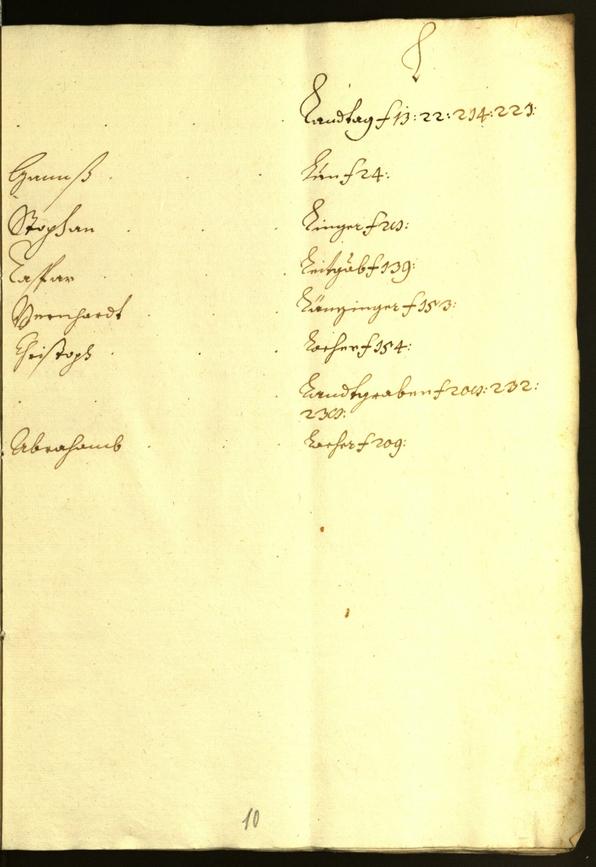 L
Landtag f 13: 22: 214: 221:
Hannß Län f 24:
Stephan Linger f
Caspar Leitgäb f 139:
Bernhardt Länzinger f 153:
Christoph Locher f 154:
Landtgraben f 232:
Abrahamb Locher f 209:
10